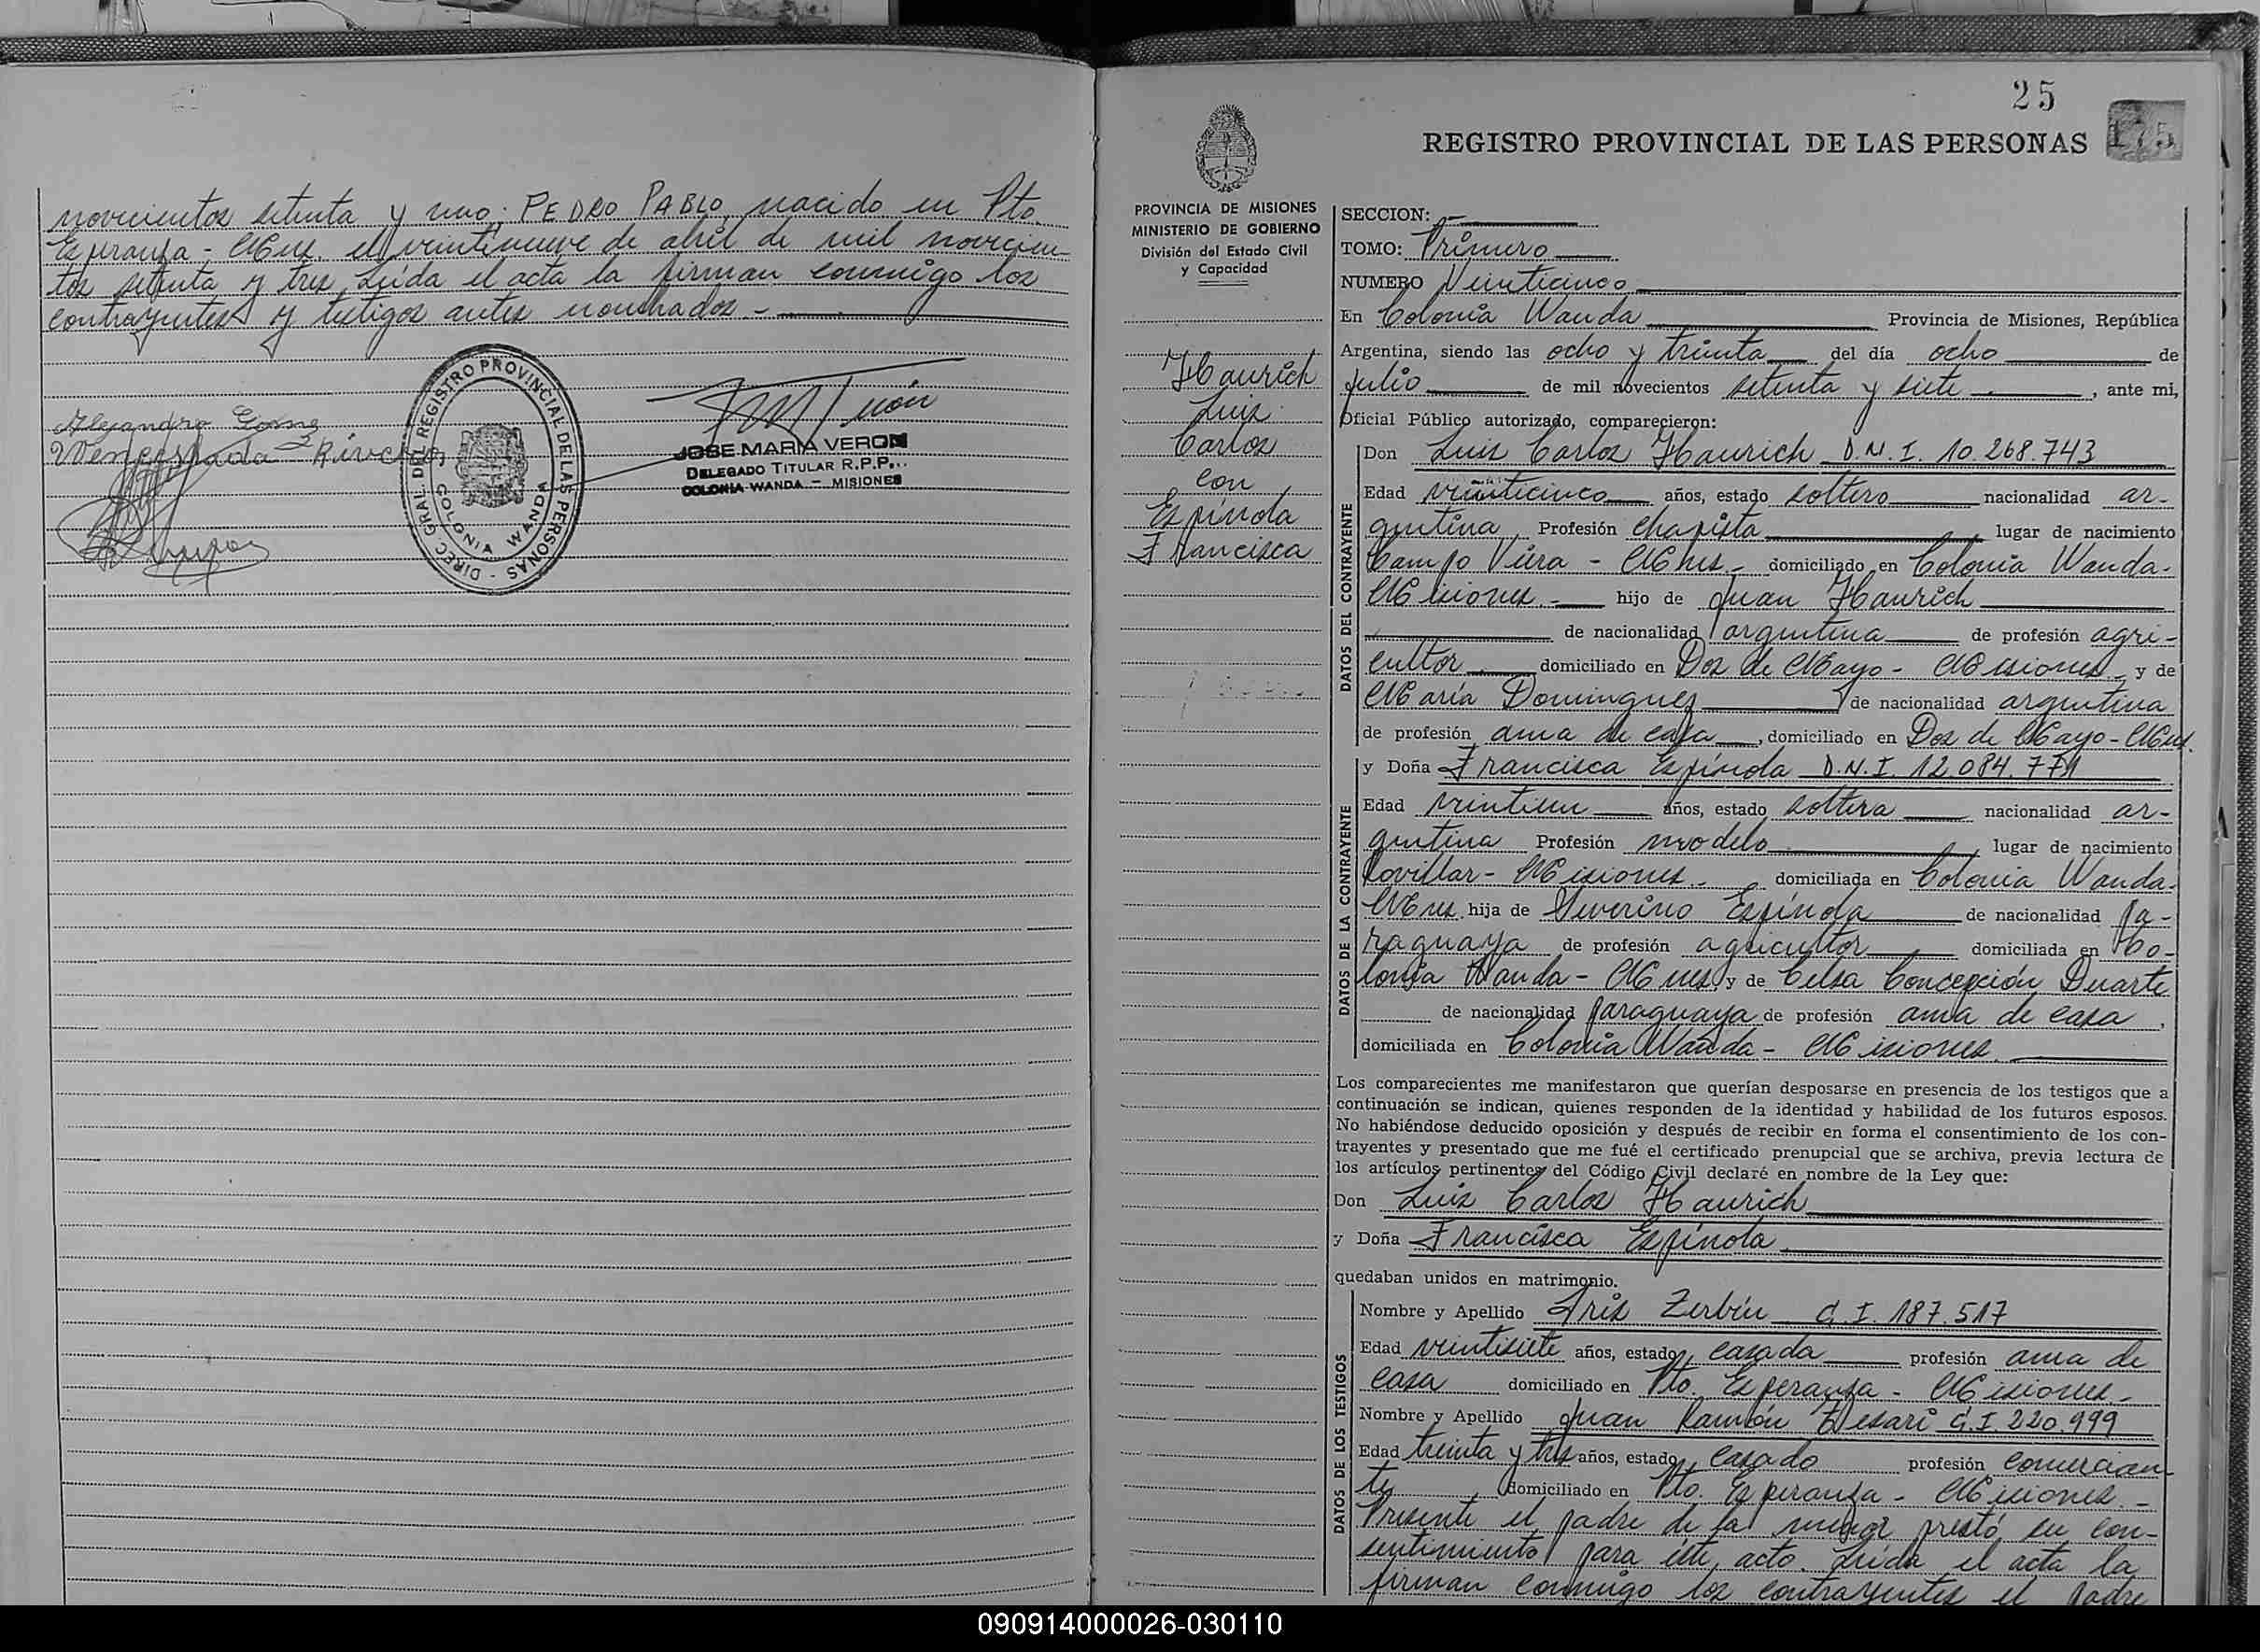 novecientos setenta y uno; PEDRO PABLO, nacido en Pto.
Esperanza - Mnes. el veintinueve de abril de mil novecien-
tos setenta y tres. Leída el acta la firman conmigo los
contrayentes y testigos antes nombrados. -
Alejandro Gomez
DIREC. GRAL DEL REGISTRO PROVINCIAL DE LAS PERSONAS -
COLONIA WANDA
JOSE MARIA VERON
DELEGADO TITULAR R.P.P.
COLONIA WANDA - MISIONES
25
175
REGISTRO PROVINCIAL DE LAS PERSONAS
PROVINCIA DE MISIONES
MINISTERIO DE GOBIERNO
División del Estado Civil
y Capacidad
Haurich
Luis
Carlos
con
Espínola
Francisca
SECCION: -
TOMO: Primero
NUMERO Veinticinco
En Colonia Wanda Provincia de Misiones, República
Argentina, siendo las ocho y treinta del día ocho de
Julio de mil novecientos setenta y siete, ante mi,
Oficial Público autorizado, comparecieron:
DATOS DEL CONTRAYENTE
Don Luis Carlos Haurich D.N.I. 10.268.743
Edad veinticinco años, estado soltero nacionalidad ar-
gentina Profesión chapista lugar de nacimiento
Campo Viera - Mnes. - domiciliado en Colonia Wanda-
Misiones. - hijo de Juan Haurich
de nacionalidad argentina de profesión agri-
cultor domiciliado en Dos de Mayo - Misiones y de
María Dominguez de nacionalidad argentina
de profesión ama de casa, domiciliado en Dos de Mayo - Mnes.
DATOS DE LA CONTRAYENTE
y Doña Francisca Espínola D.N.I. 12.084.771
Edad veintiun años, estado soltera nacionalidad ar-
gentina Profesión modelo lugar de nacimiento
Rovillar - Misiones. - domiciliada en Colonia Wanda-
Mnes. hija de Severino Espínola de nacionalidad pa-
raguaya de profesión agricultor domiciliada en Co-
lonia Wanda - Mnes. y de Celsa Concepción Duarte
de nacionalidad paraguaya de profesión ama de casa,
domiciliada en Colonia Wanda - Misiones.
Los comparecientes me manifestaron que querían desposarse en presencia de los testigos que a
continuación se indican, quienes responden de la identidad y habilidad de los futuros esposos.
No habiéndose deducido oposición y después de recibir en forma el consentimiento de los con-
trayentes y presentado que me fué el certificado prenupcial que se archiva, previa lectura de
los artículos pertinentes del Código Civil declaré en nombre de la Ley que:
Don Luis Carlos Haurich
y Doña Francisca Espínola
quedaban unidos en matrimonio.
DATOS DE LOS TESTIGOS
Nombre y Apellido Iris Zerbin C.I. 187.517
Edad veintisiete años, estado casada profesión ama de
casa domiciliado en Pto. Esperanza - Misiones. -
Nombre y Apellido Juan Ramón C.I. 220.999
Edad treinta y tres años, estado casado profesión comercian-
te domiciliado en Pto. Esperanza - Misiones. -
Presente el padre de la menor prestó su con-
sentimiento para este acto. Leída el acta la
firman conmigo los contrayentes el padre
090914000026-030110